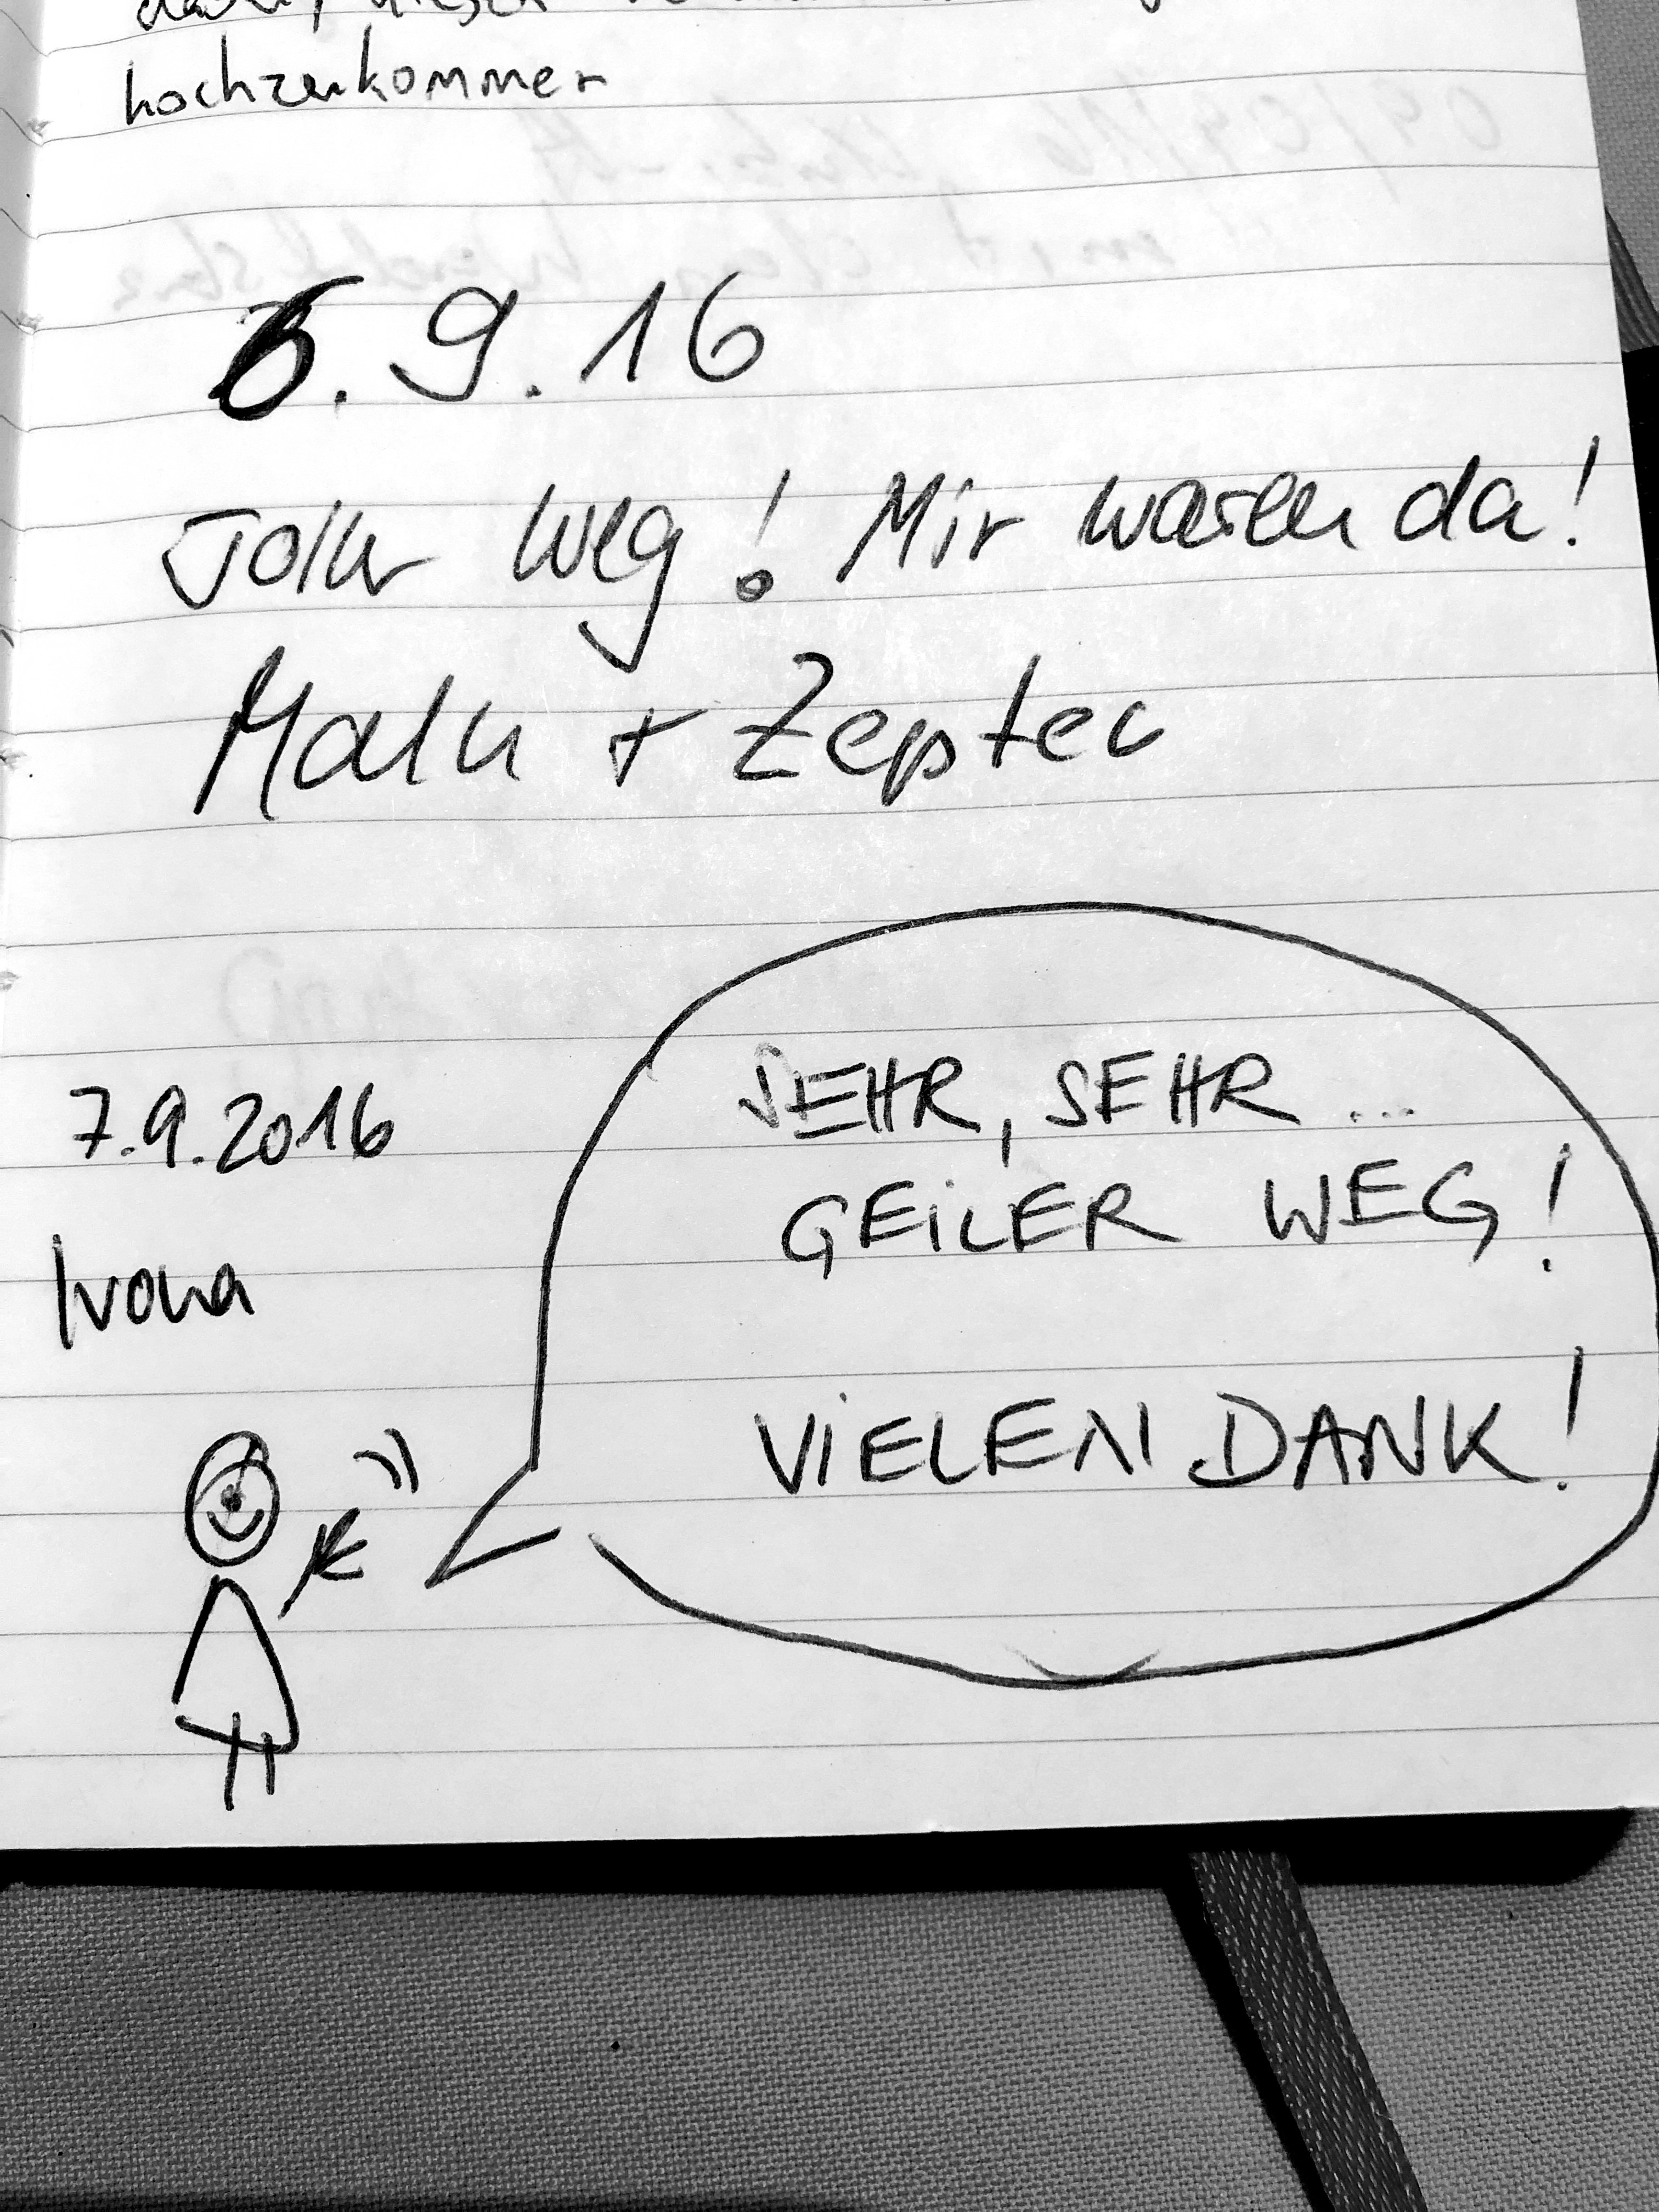 hochzukommen
6.9.16
Toller Weg! Mir waren da!
+
7.9.2016
Ivona
SEHR, SEHR ...
GEILER WEG!
VIELEN DANK!